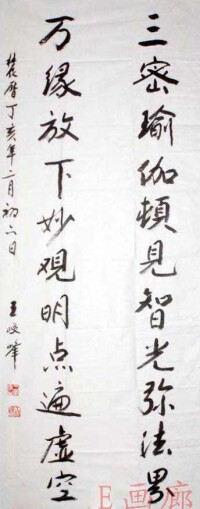 三密瑜伽頓見智光弥法界
万缘放下妙观明点遍虚空
农历丁亥年六月初六日
王峻峰
E画廊